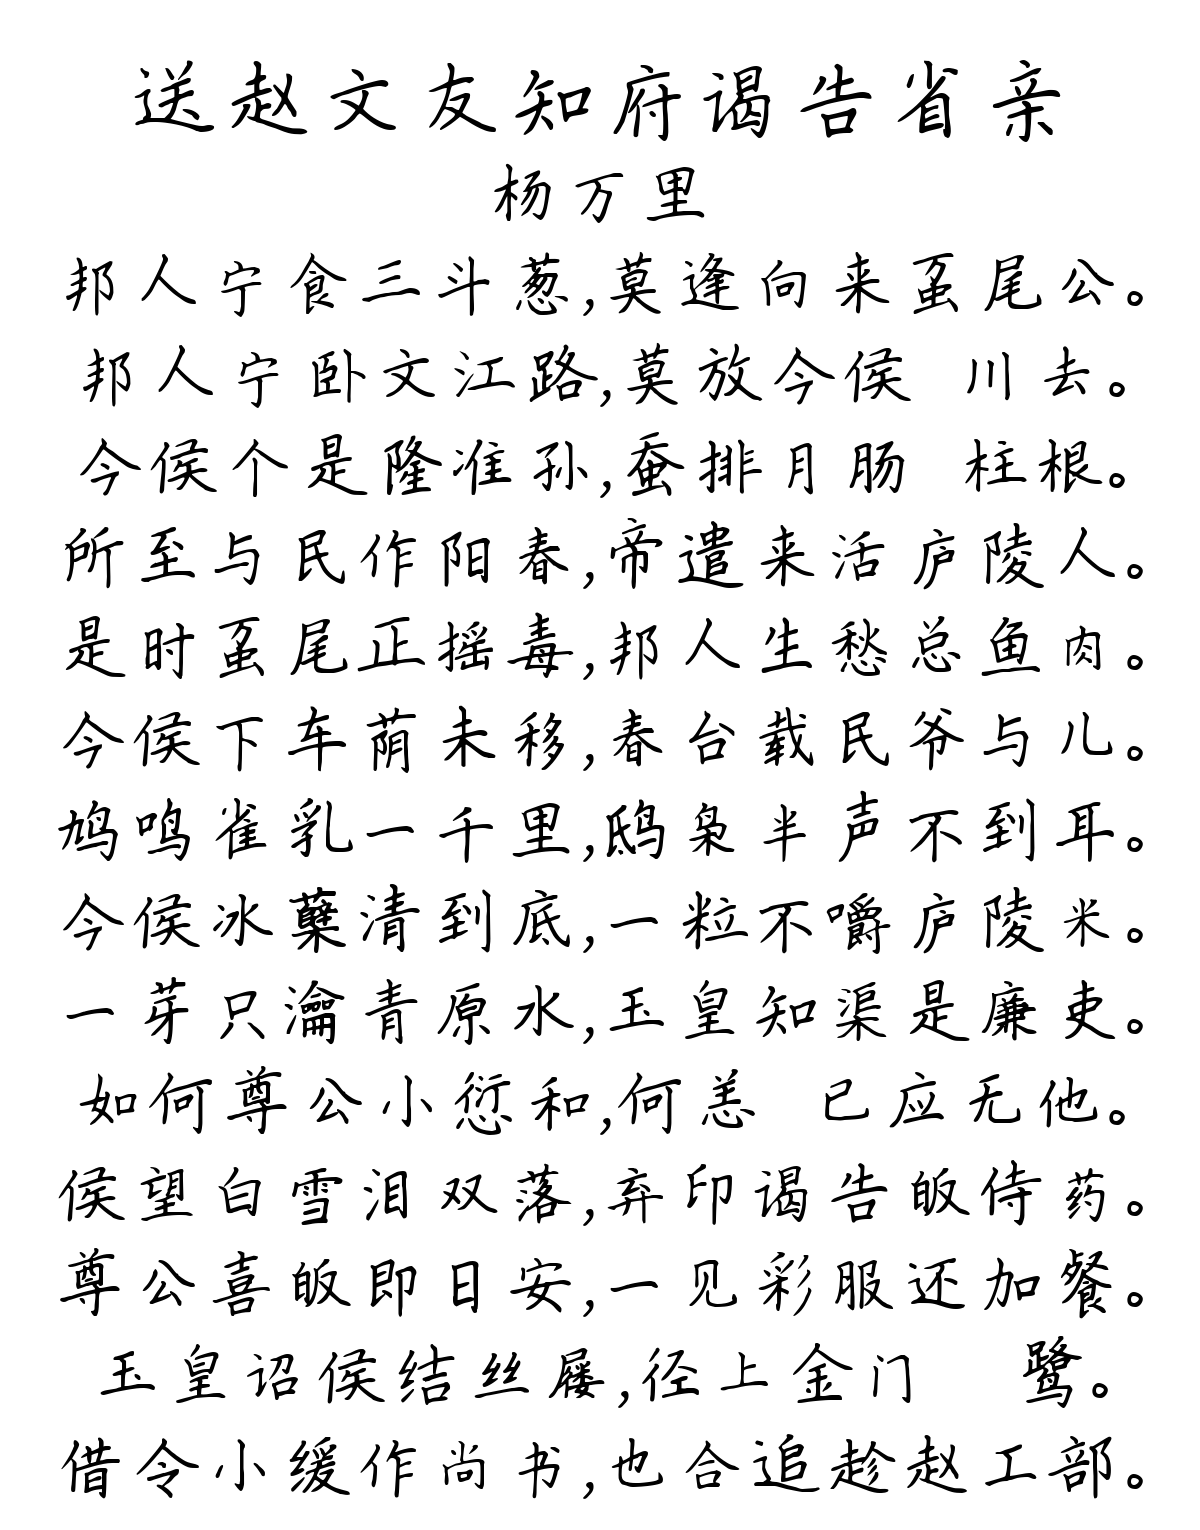 送赵文友知府谒告省亲
杨万里
邦人宁食三斗葱,莫逢向来虿尾公。
邦人宁卧文江路,莫放今侯 川去。
今侯个是隆准孙,蚕排月肠 柱根。
所至与民作阳春,帝遣来活庐陵人。
是时虿尾正摇毒,邦人生愁总鱼肉。
今侯下车荫未移,春台载民爷与儿。
鸠鸣雀乳一千里,鸱枭半声不到耳。
今侯冰蘖清到底,一粒不嚼庐陵米。
一芽只瀹青原水,玉皇知渠是廉吏。
如何尊公小愆和,何恙 已应无他。
侯望白雪泪双落,弃印谒告皈侍药。
尊公喜皈即日安,一见彩服还加餐。
玉皇诏侯结丝屦,径上金门 鹭。
借令小缓作尚书,也合追趁赵工部。